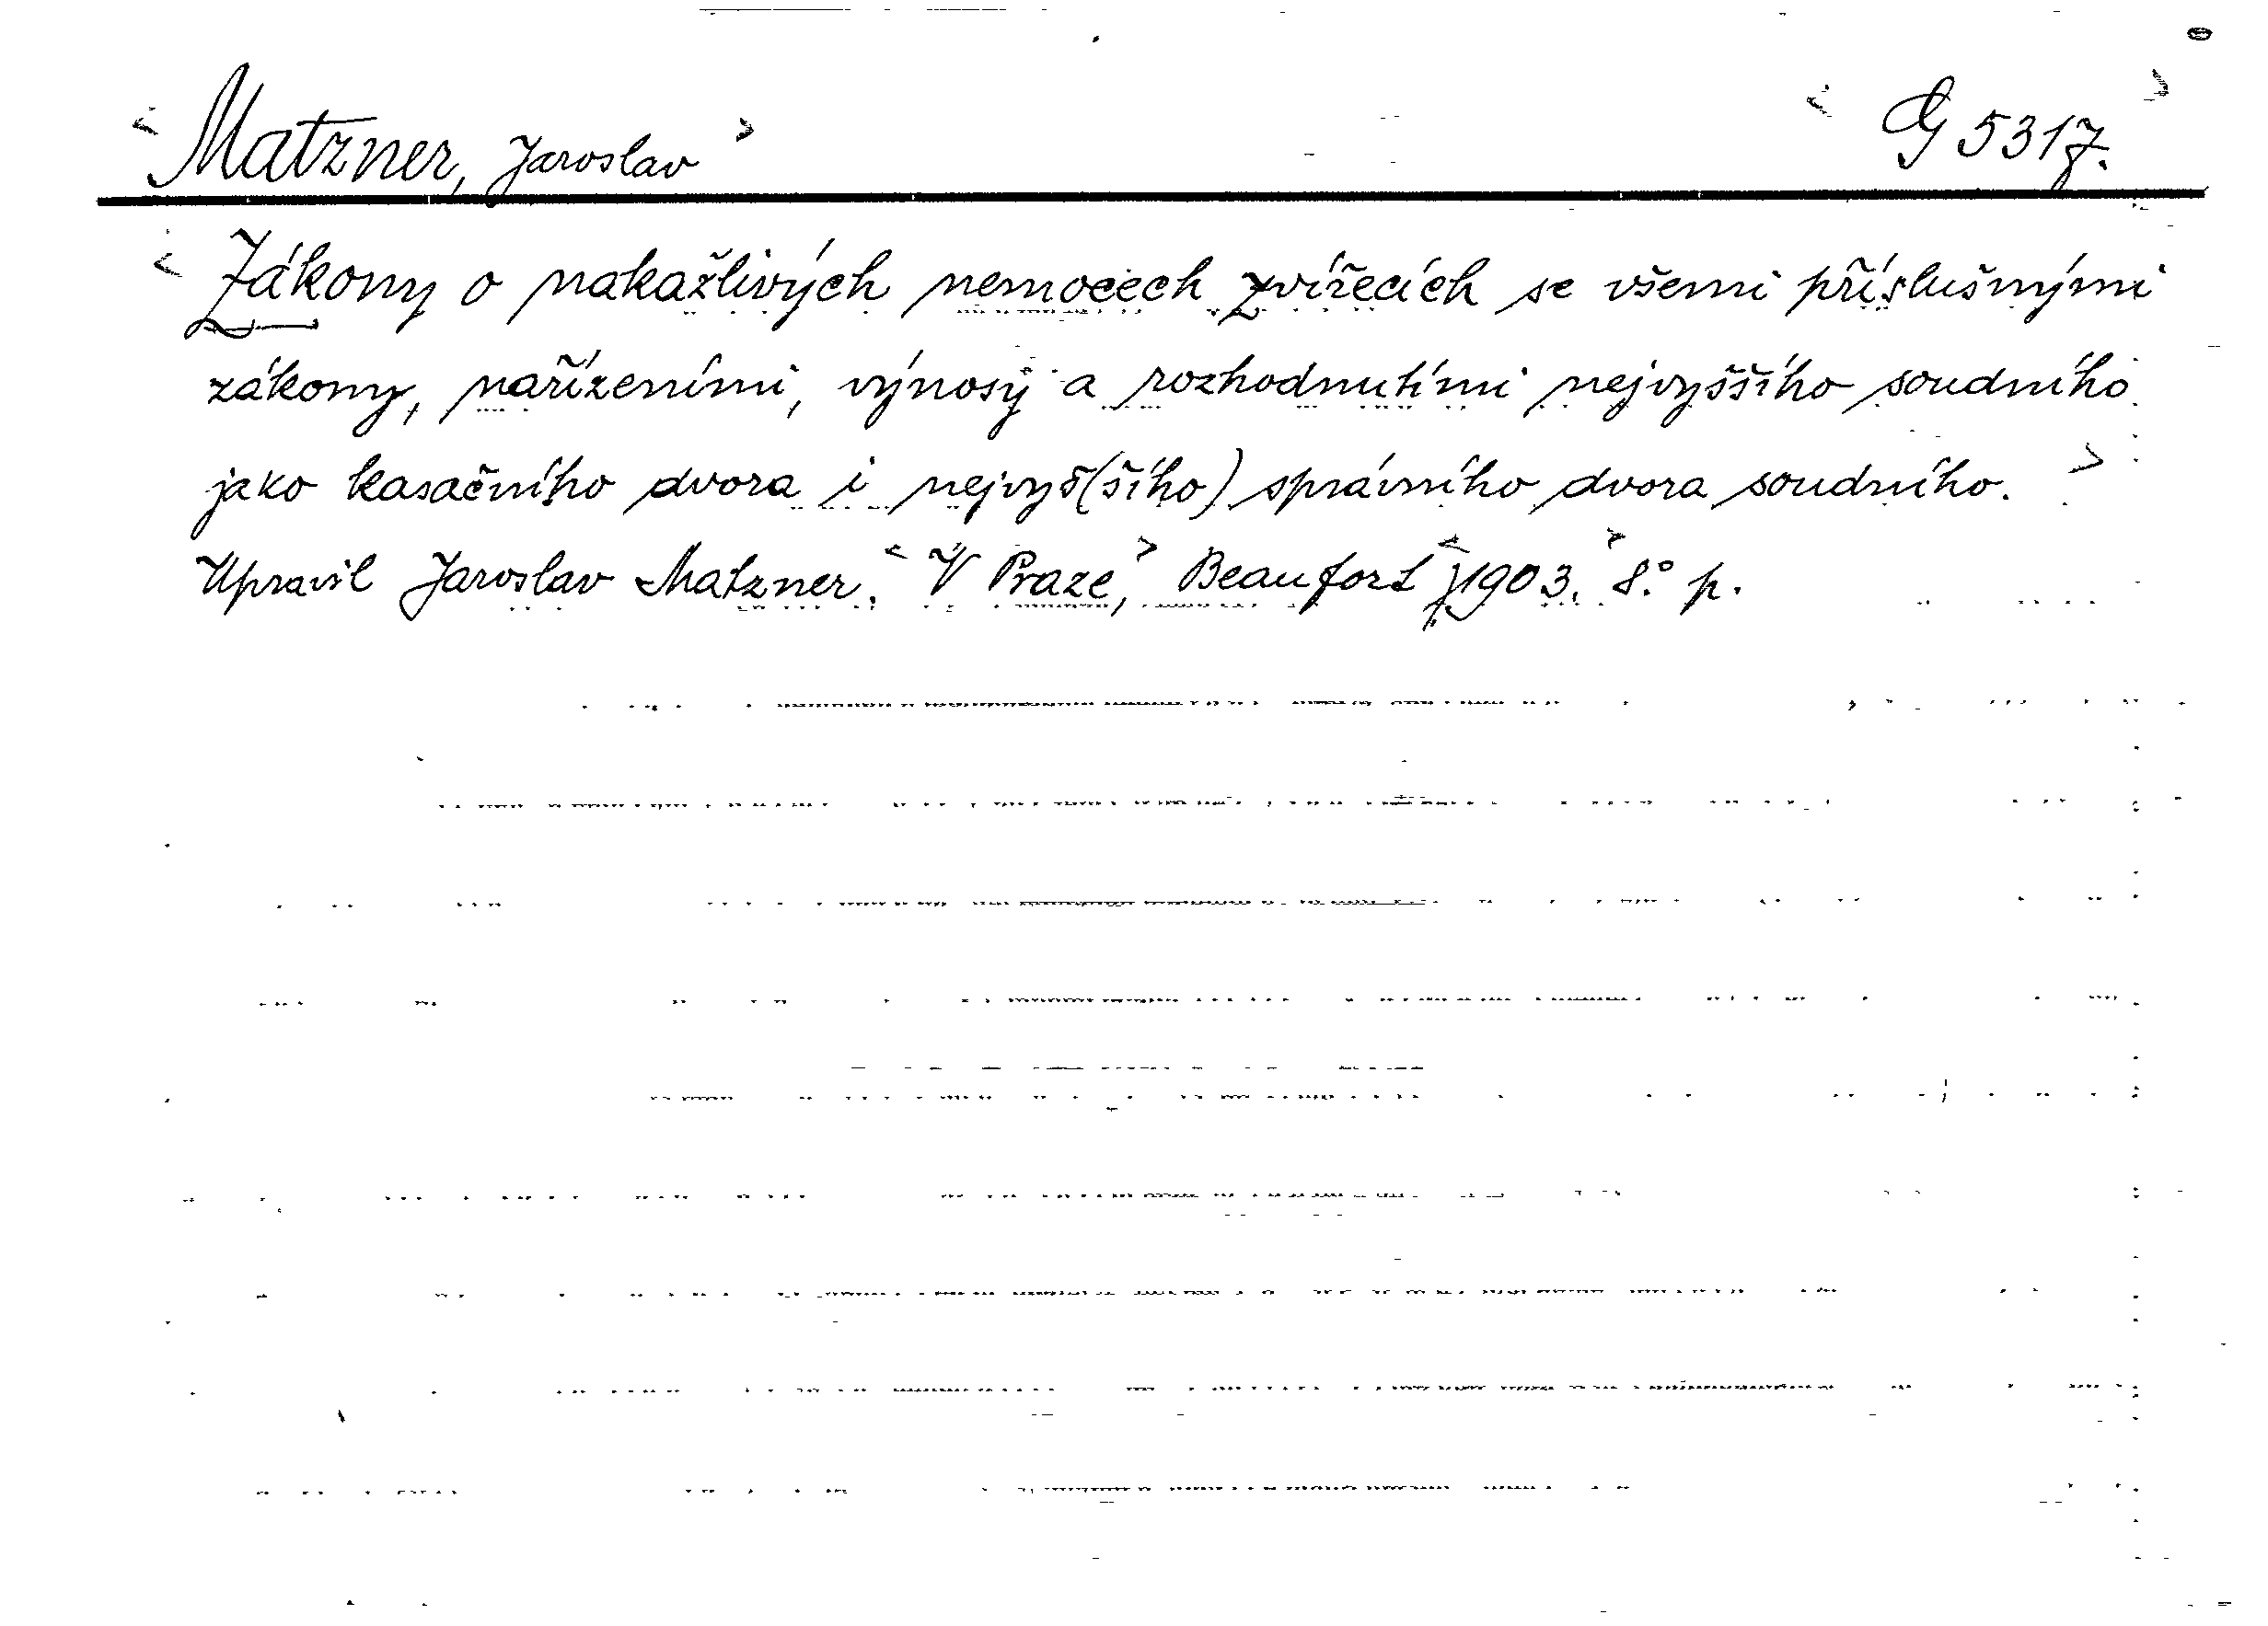 Matzner, Jaroslav G 5317.
Zákony o nakažlivých nemocech zvířecích se všemi příslušnými
zákony, nařízeními, výnosy a rozhodnutími nejvyššího soudního
jako kasačního dvora i nejvyš(šího) správního dvora soudního.
Upravil Jaroslav Matzner. V Praze, Beaufort 1903. 8.° p.